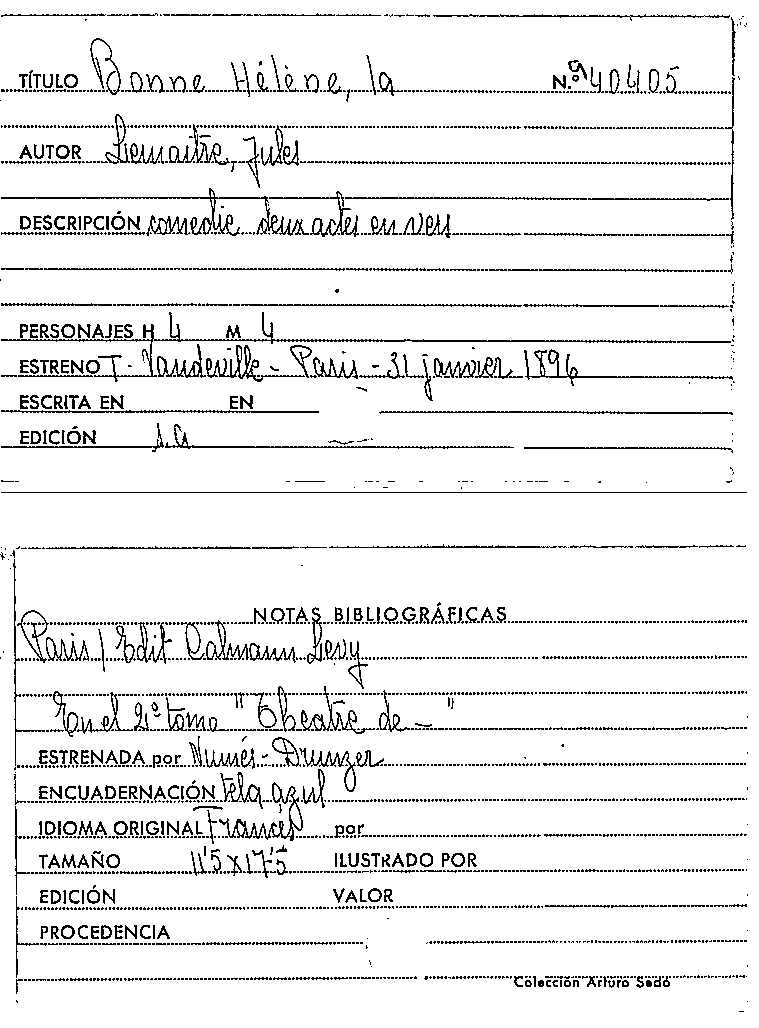 TÍTULO Bonne Hélène, la N.º 40405
AUTOR Lemaitre, Jules
DESCRIPCIÓN comedie deux actes en vers
PERSONAJES H 4 M 4
ESTRENO T. Vaudeville - Paris - 31 janvier 1896
ESCRITA EN EN
EDICIÓN s.a.
NOTAS BIBLIOGRÁFICAS
Paris / Edit Calmann Levy
En el 2º tomo "Theatre de - "
ESTRENADA por Numés - Drunzer
ENCUADERNACIÓN tela azul
IDIOMA ORIGINAL Francés por
TAMAÑO 11'5 x 17'5 ILUSTRADO POR
EDICIÓN VALOR
PROCEDENCIA
Colección Arturo Sedó